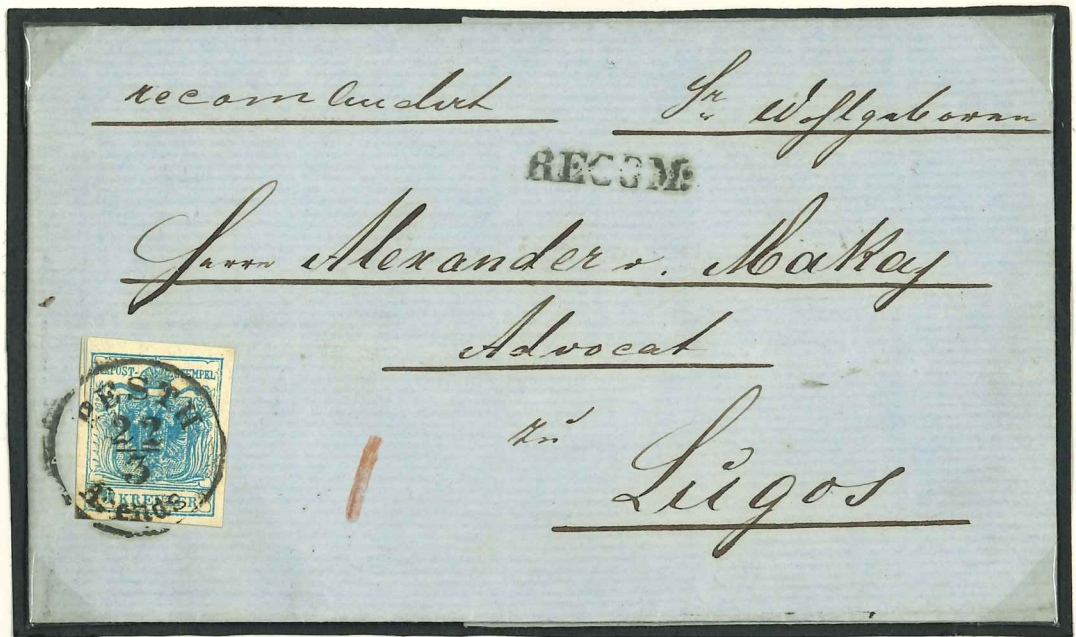 recomandirt
Sr Wohlgeboren
RECOM:
Herrn Alexander v. Makay
Advocat
zu
Lúgos
POST-STEMPEL
PESTH
22
3
Abends
KREUZER